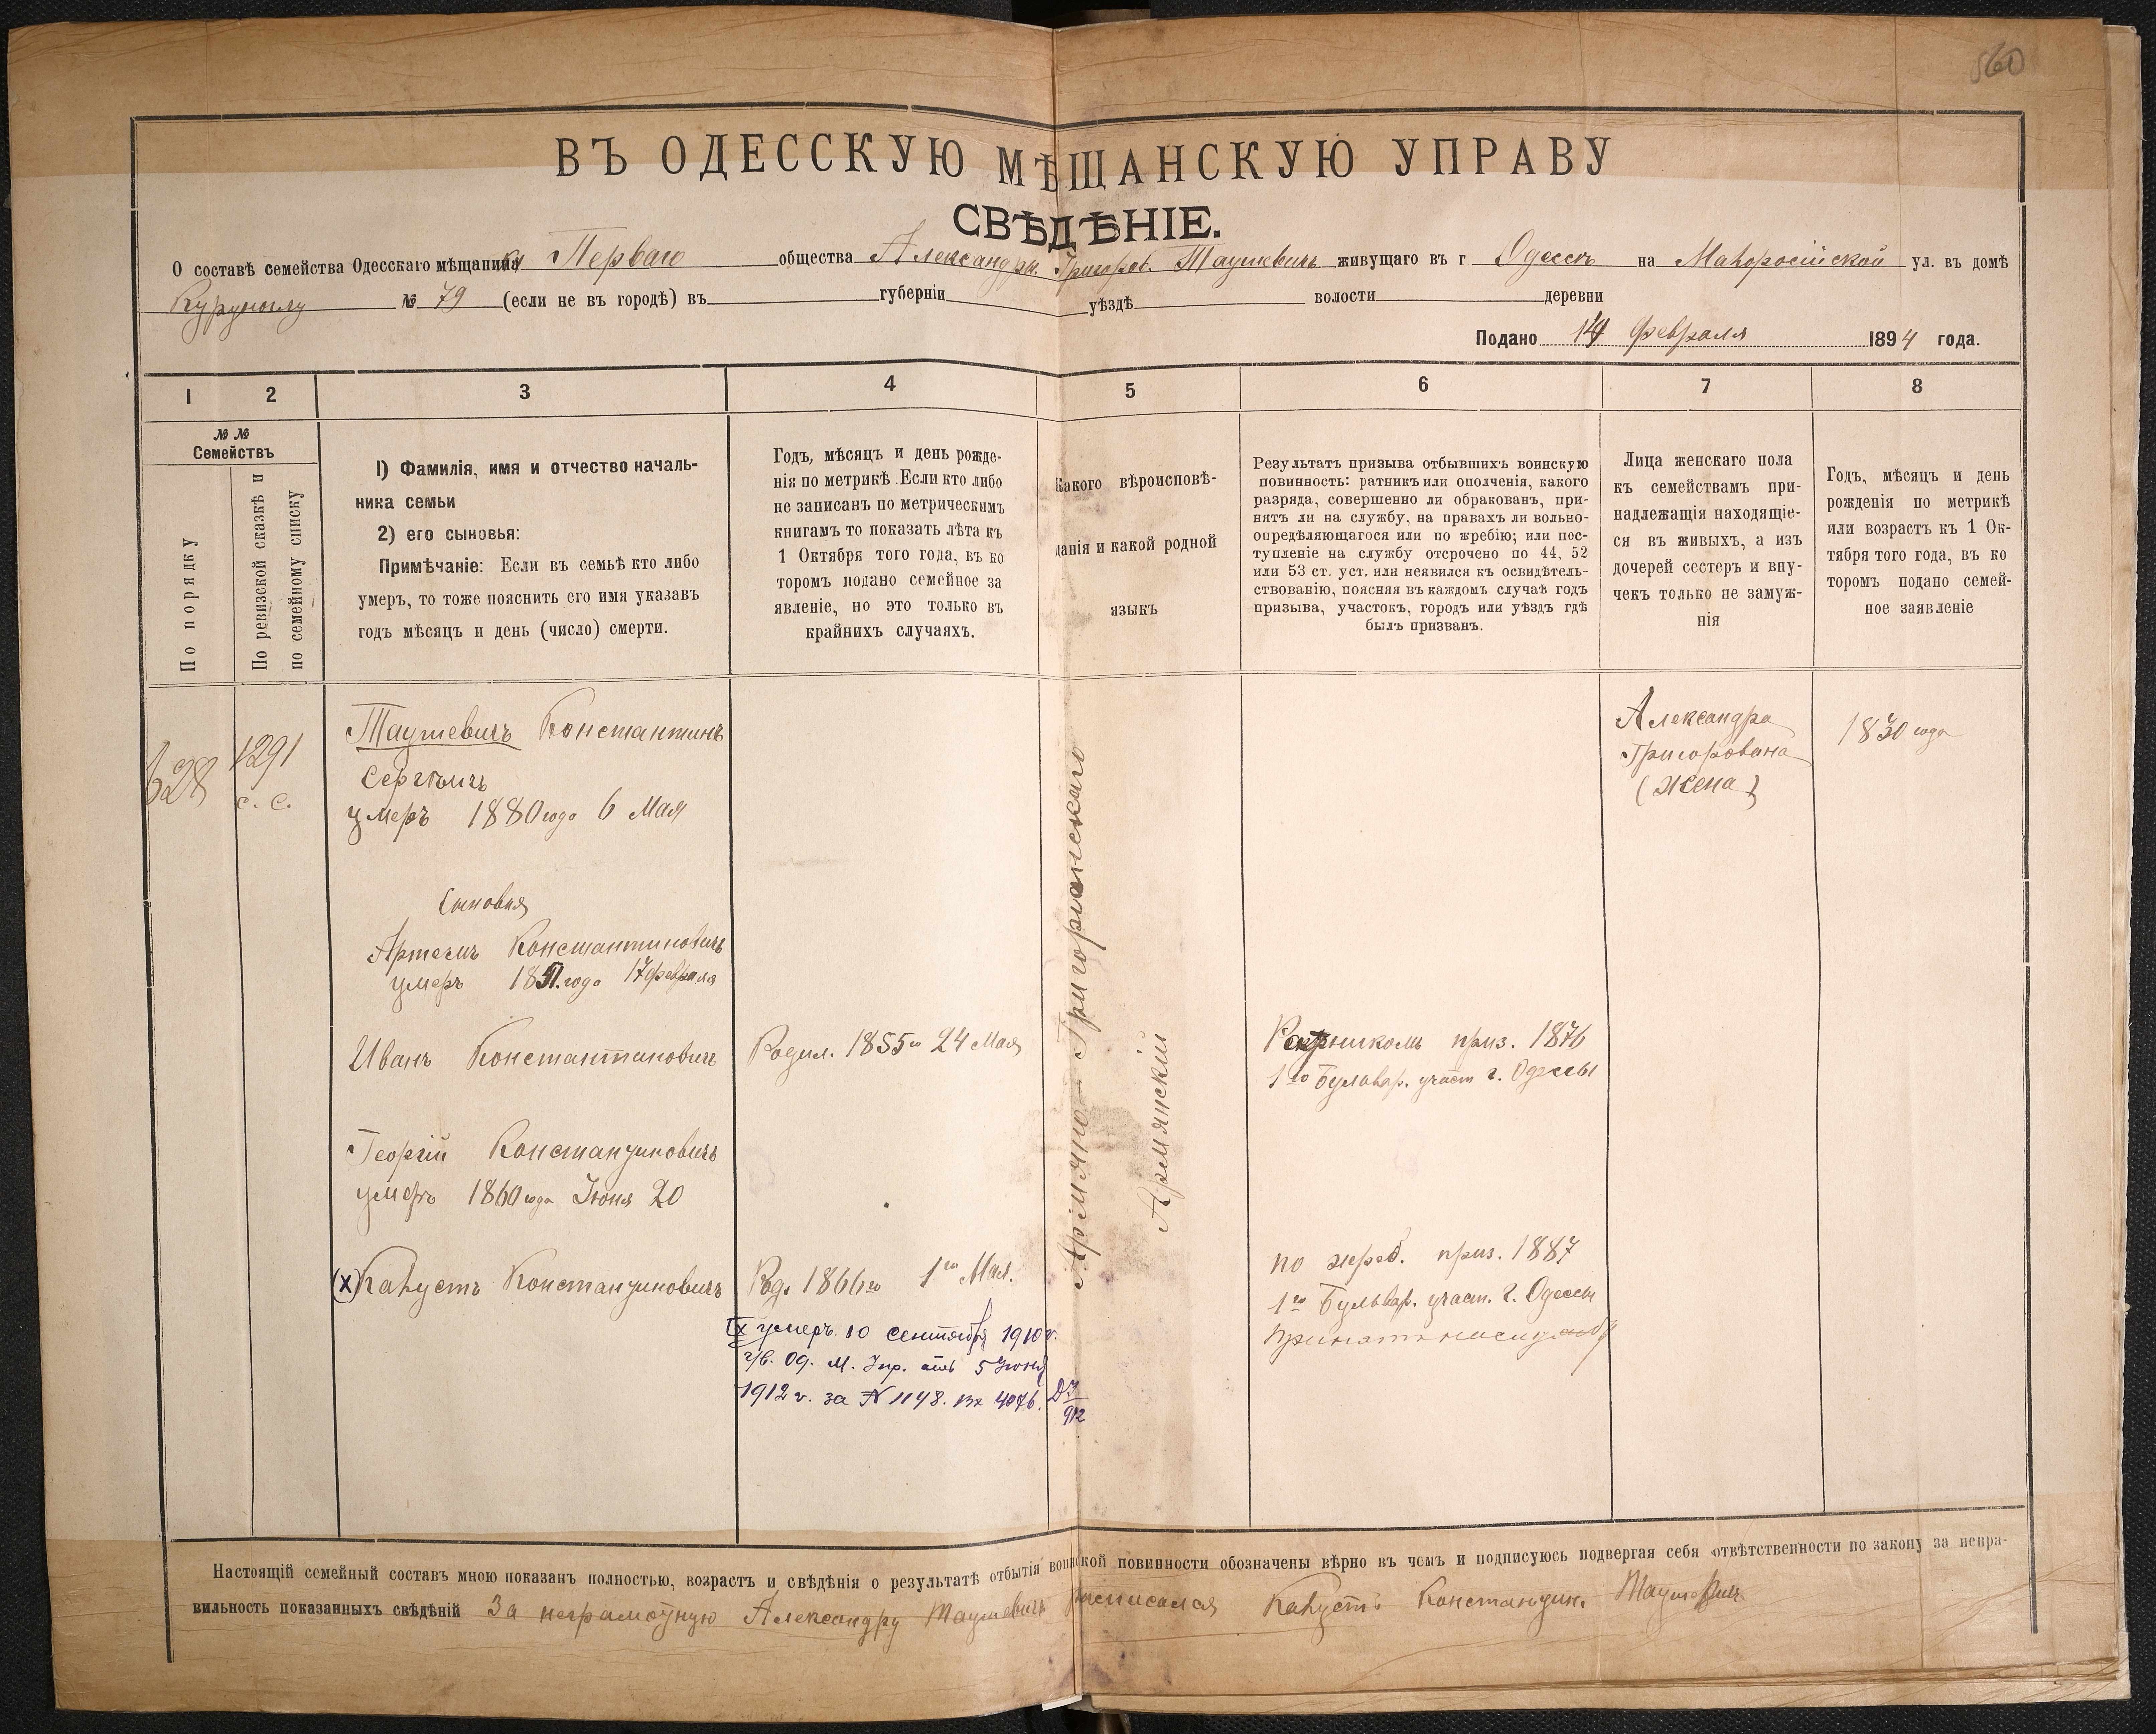 560
ВЪ ОДЕССКУЮ МѢЩАНСКУЮ УПРАВУ
СВѢДѢНІЕ.
О составѣ семейства Одесскаго мѣщанина Перваго общества Александры Григоров. Таушевичъ живущаго въ г Одессѣ на Малоросійской ул. въ домѣ
№ 79 (если не въ городѣ) въ губерніи уѣздѣ волости деревни
Подано 14 февраля 1894 года.
1 2 3 4 5 6 7 8
№ №
Семействъ
По порядку
По ревизской сказкѣ и
по семейному списку
1) Фамилія, имя и отчество началь-
ника семьи
2) его сыновья:
Примѣчаніе: Если въ семьѣ кто либо
умеръ, то тоже пояснить его имя указавъ
годъ мѣсяцъ и день (число) смерти.
Годъ, мѣсяцъ и день рожде-
нія по метрикѣ. Если кто либо
не записанъ по метрическимъ
книгамъ то показать лѣта къ
1 Октября того года, въ ко
торомъ подано семейное за
явленіе, но это только въ
крайнихъ случаяхъ.
Какого вѣроисповѣ-
данія и какой родной
языкъ
Результатъ призыва отбывшихъ воинскую
повинность: ратникъ или ополченія, какого
разряда, совершенно ли обракованъ, при-
нятъ ли на службу, на правахъ ли вольно-
опредѣляющагося или по жребію; или пос-
тупленіе на службу отсрочено по 44, 52
или 53 ст. уст. или неявился къ освидѣтель-
ствованію, поясняя въ каждомъ случаѣ годъ
призыва, участокъ, городъ или уѣздъ гдѣ
былъ призванъ.
Лица женскаго пола
къ семействамъ при-
надлежащія находящіе-
ся въ живыхъ, а изъ
дочерей сестеръ и вну-
чекъ только не замуж-
нія
Годъ, мѣсяцъ и день
рожденія по метрикѣ
или возрастъ къ 1 Ок-
тября того года, въ ко
торомъ подано семей-
ное заявленіе
628
1291
с. с.
Таушевичъ Константинъ
Сергѣичъ
умеръ 1880 года 6 Мая
Александра
Григоровина
(жена)
1830 года
Сыновья
Артемъ Константиновичъ
умеръ года 17 февраля
Иванъ Константиновичъ
Родил. 1855 го 24 Мая
Ратникомъ приз. 1876
1го Бульвар. участ г. Одессы
Георгій Константиновичъ
умеръ 1860 года Іюня 20
(х) Капустъ Константиновичъ
Род. 1866 го 1го Мая.
х умеръ 10 сентября 1910 г.
Од. М. Упр. отъ 5 Іюня
1912 г. за № 1148. вх 4076.
912
по жреб. приз. 1887
1го Бульвар. участ. г. Одессы
принятъ на службу
Армяно-Григоріанскаго
Армянскій
Настоящій семейный составъ мною показанъ полностью, возрастъ и свѣдѣнія о результатѣ отбытія воинской повинности обозначены вѣрно въ чемъ и подписуюсь подвергая себя отвѣтственности по закону за непра-
вильность показанныхъ свѣдѣній За неграмотную Александру Таушевичъ росписался Капустъ Константин. Таушевичъ